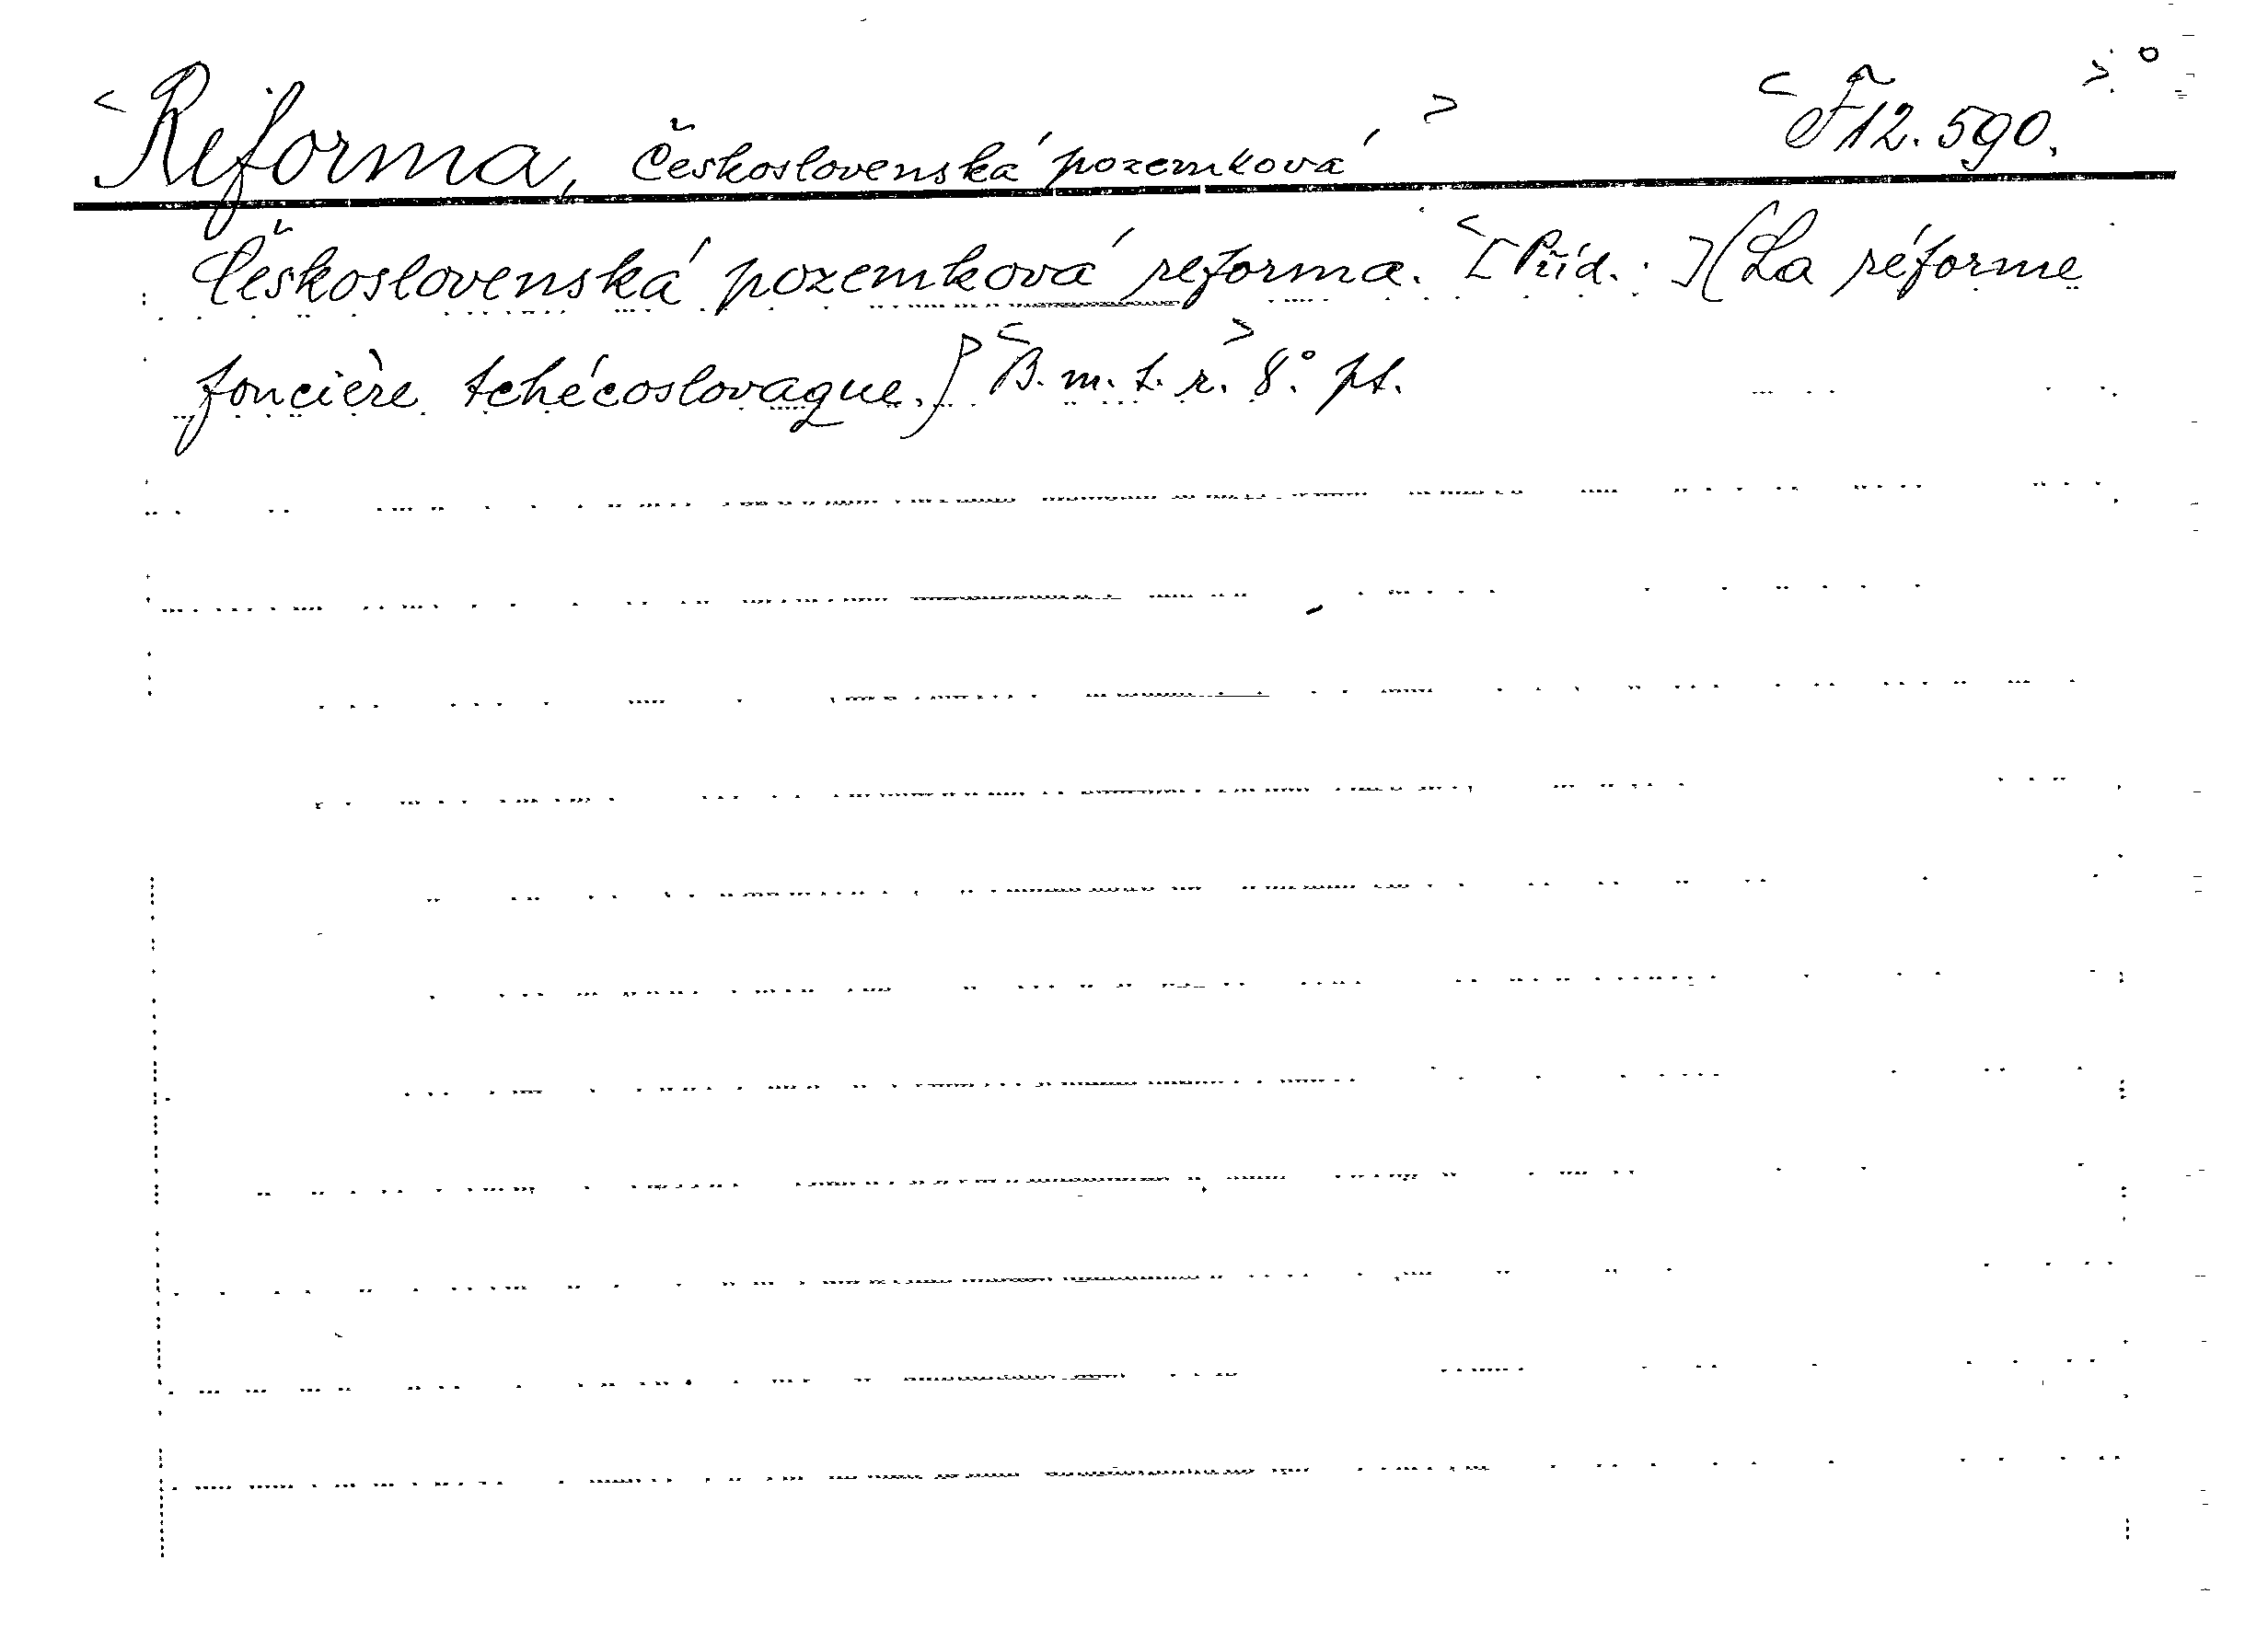 <Reforma, československá pozemková> <F 12.590.>°
Československá pozemková reforma. <[Příd.: ] (La réforme
foncière tchécoslovaque.) <B. m. t. r.> 8°. pt.